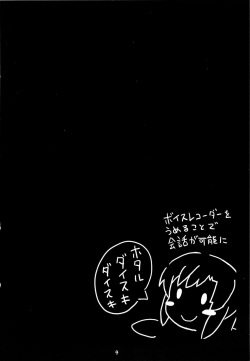 ボイスレコーダーを
うめることで
会話が可能に
ホタル
ダイスキ
ダイスキ